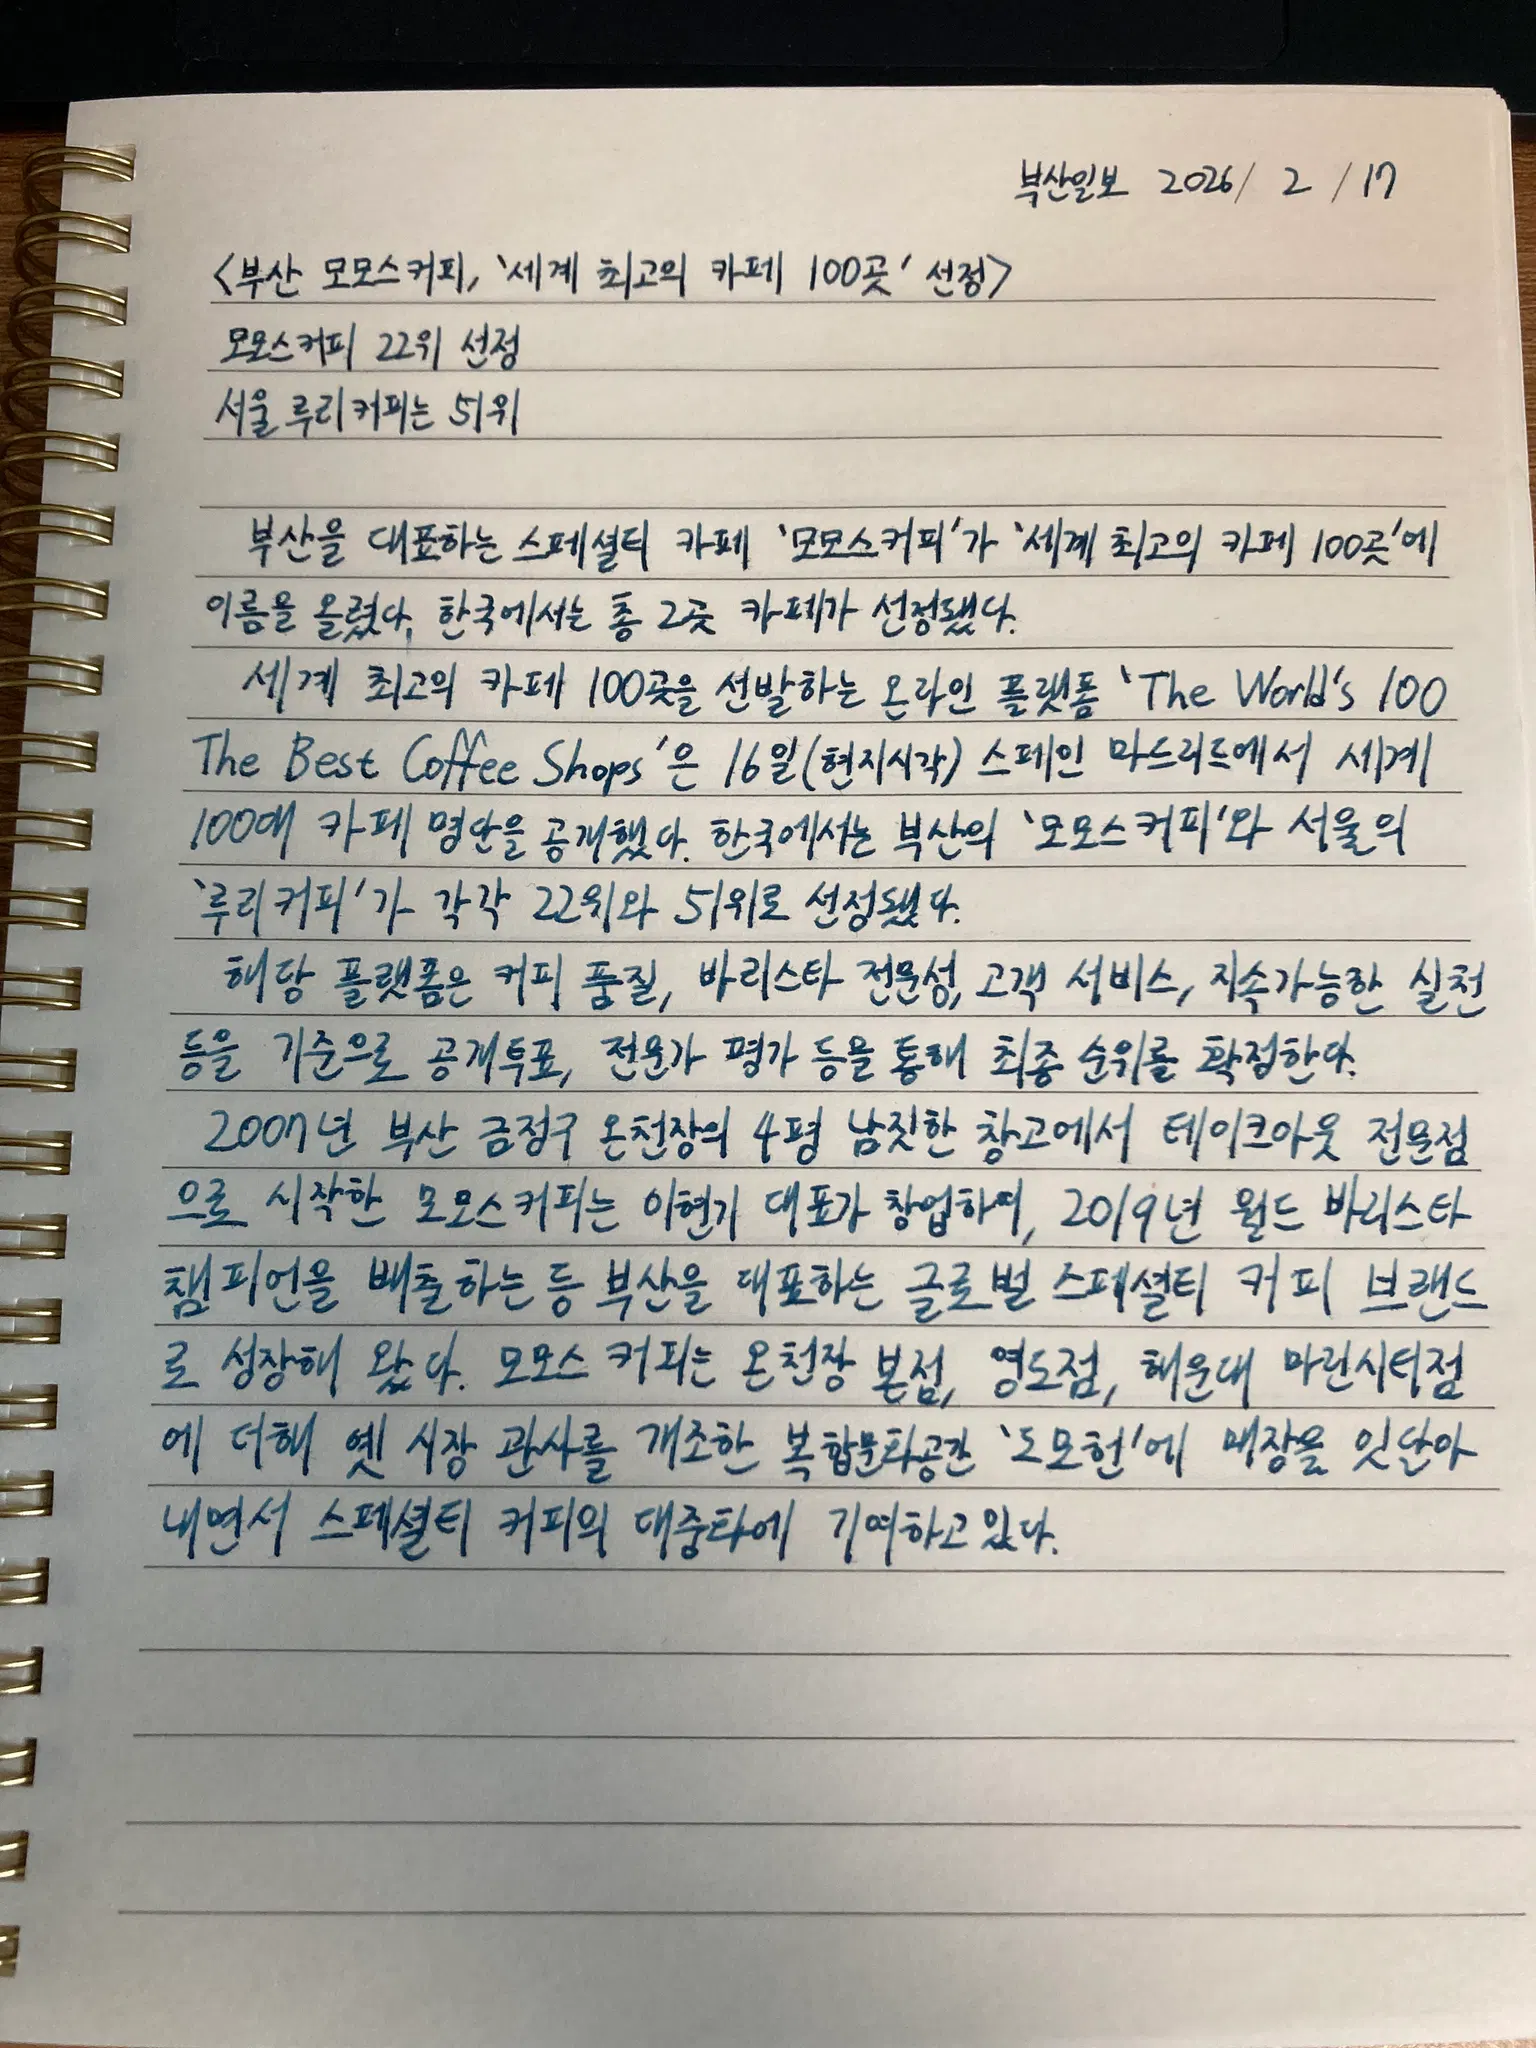 부산일보 2026/ 2 /17
<부산 모모스커피, '세계 최고의 카페 100곳' 선정>
모모스커피 22위 선정
서울 루리커피는 51위
부산을 대표하는 스페셜티 카페 '모모스커피'가 '세계 최고의 카페 100곳'에
이름을 올렸다. 한국에서는 총 2곳 카페가 선정됐다.
세계 최고의 카페 100곳을 선발하는 온라인 플랫폼 'The World's 100
The Best Coffee Shops'은 16일(현지시각) 스페인 마드리드에서 세계
100대 카페 명단을 공개했다. 한국에서는 부산의 '모모스커피'와 서울의
'루리커피'가 각각 22위와 51위로 선정됐다.
해당 플랫폼은 커피 품질, 바리스타 전문성, 고객 서비스, 지속가능한 실천
등을 기준으로 공개투표, 전문가 평가 등을 통해 최종 순위를 확정한다.
2007년 부산 금정구 온천장의 4평 남짓한 창고에서 테이크아웃 전문점
으로 시작한 모모스커피는 이현기 대표가 창업하며, 2019년 월드 바리스타
챔피언을 배출하는 등 부산을 대표하는 글로벌 스페셜티 커피 브랜드
로 성장해 왔다. 모모스커피는 온천장 본점, 영도점, 해운대 마린시티점
에 더해 옛 시장 관사를 개조한 복합문화공간 '도모헌'에 매장을 잇단아
내면서 스페셜티 커피의 대중화에 기여하고 있다.